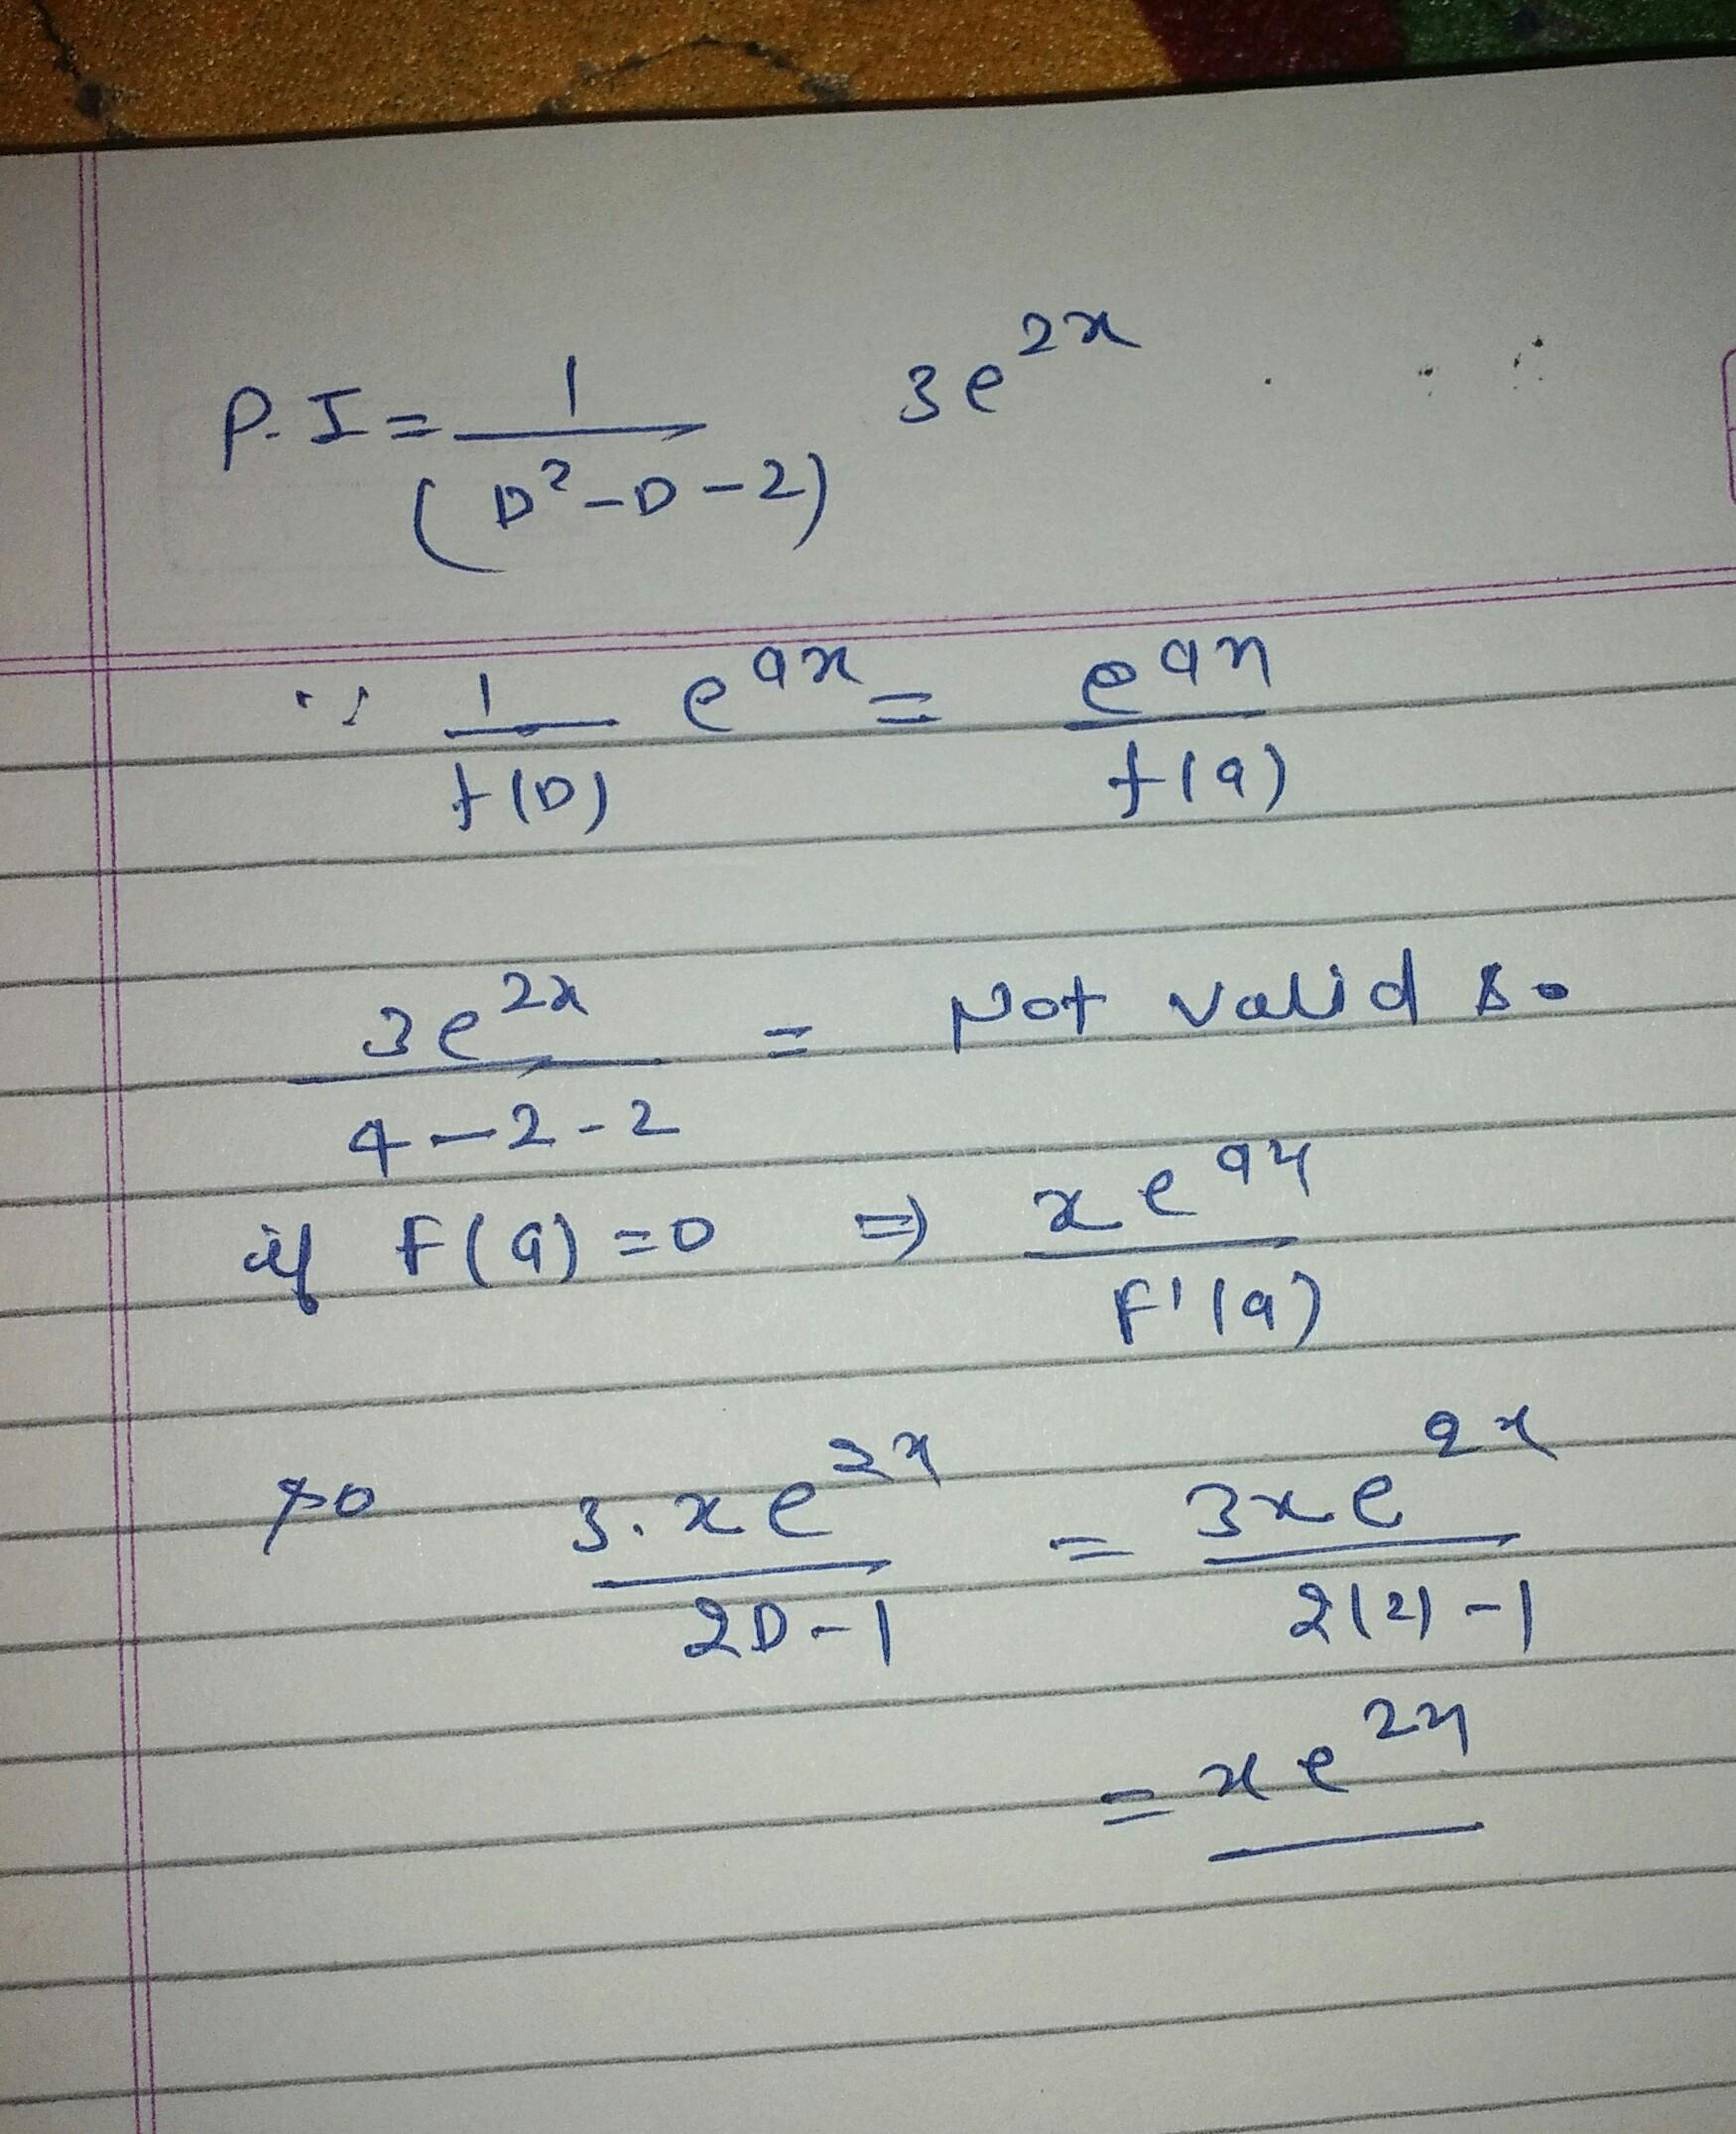 P.I = 1/(D² - D - 2) 3e^2x
∵ 1/f(D) e^ax = e^ax/f(a)
3e^2x/4-2-2 = Not valid so
if F(a) = 0 ⇒ xe^ax/F'(a)
so 3.xe^2x/2D-1 = 3xe^2x/2(2)-1
= xe^2x